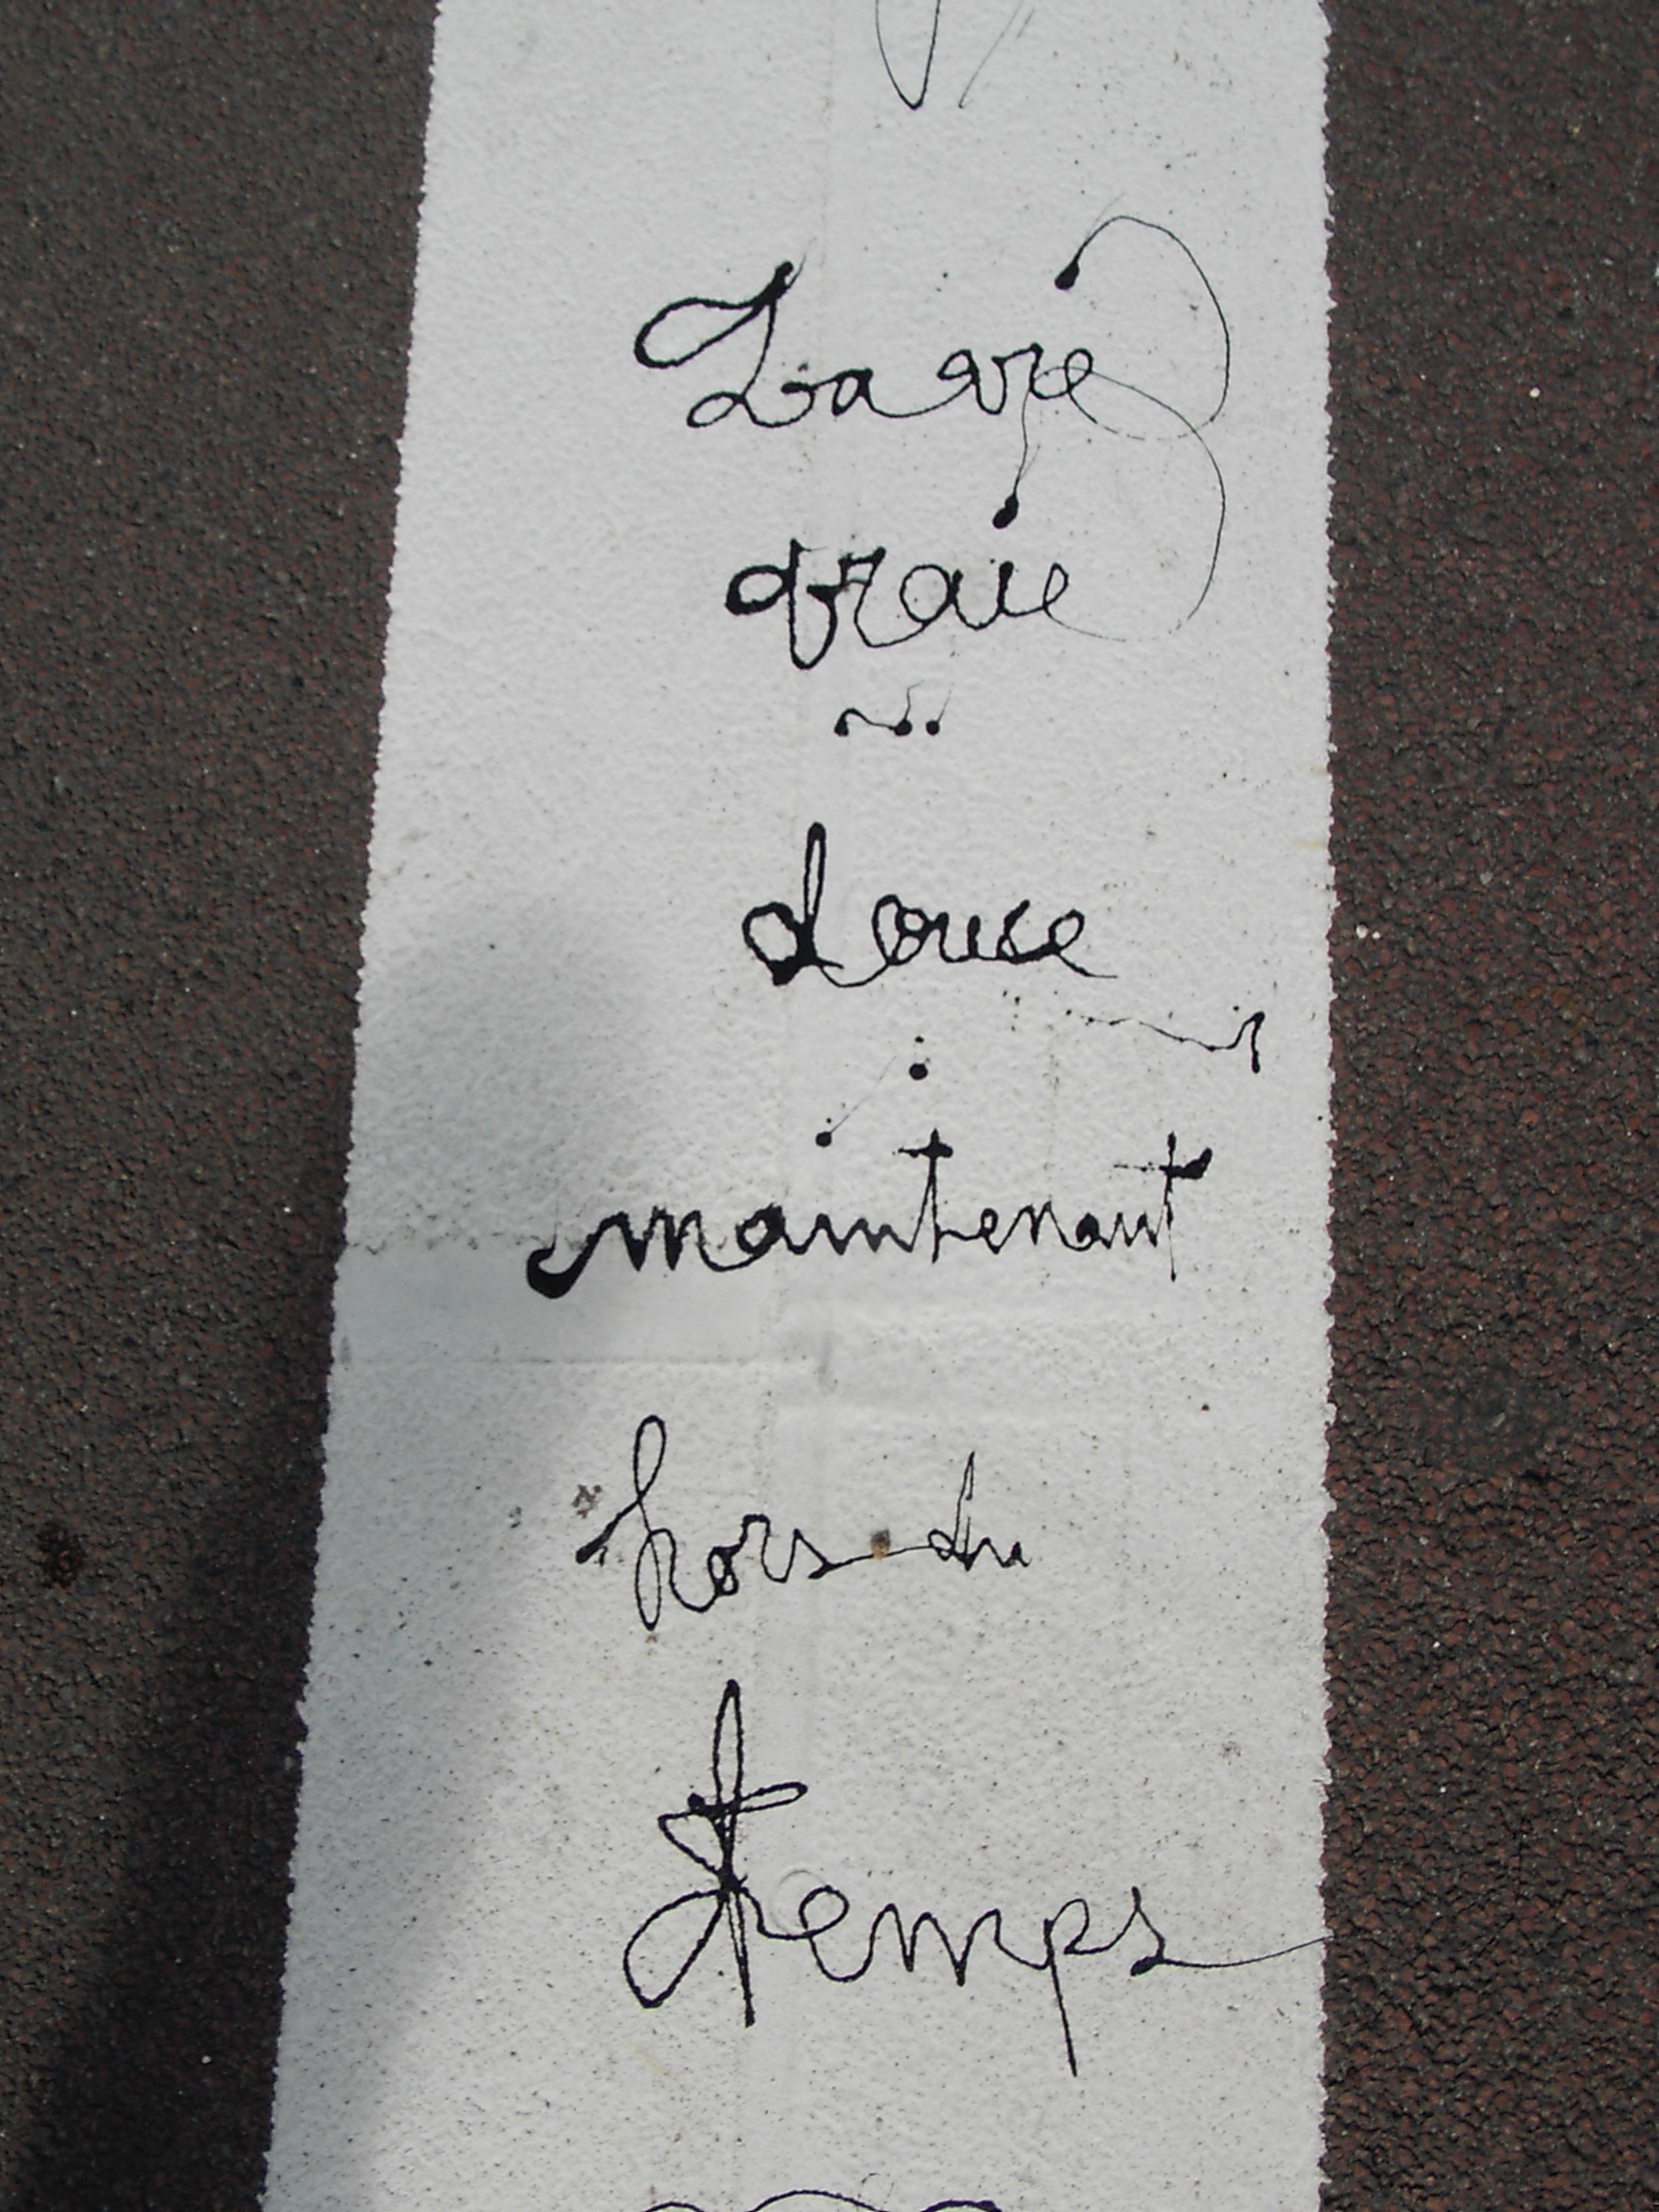 La vie
vraie
...
douce
maintenant
hors du
temps